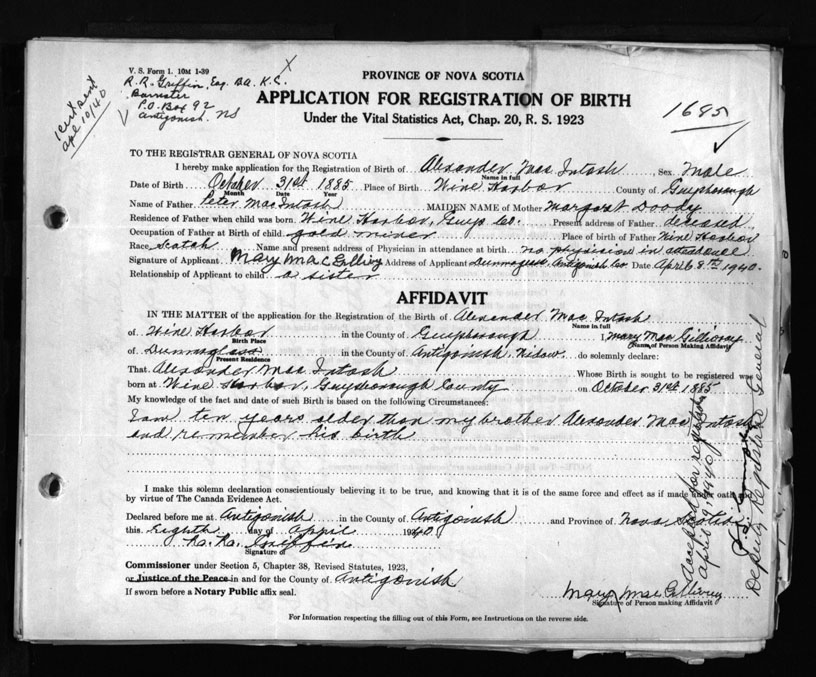 V. S. Form 1. 10M 1-39
R. R. Griffin, Esq. B.A. K.C. X
Barrister
P.O. Box 92
Antigonish. NS
1 cert sent
Apl 10/40
PROVINCE OF NOVA SCOTIA
APPLICATION FOR REGISTRATION OF BIRTH
Under the Vital Statistics Act, Chap. 20, R. S. 1923
1685
TO THE REGISTRAR GENERAL OF NOVA SCOTIA
I hereby make application for the Registration of Birth of Alexander Mac Intosh, Sex Male
Name in full
Date of Birth October 31st 1885 Place of Birth Wine Harbor County of Guysborough
Month Date Year
Name of Father Peter MacIntosh MAIDEN NAME of Mother Margaret Doody
Residence of Father when child was born Wine Harbor, Guys Co. Present address of Father deceased
Occupation of Father at Birth of child gold miner Place of birth of Father Wine Harbor
Race Scotch Name and present address of Physician in attendance at birth no physician in attendance
Signature of Applicant Mary MacGillivray Address of Applicant Antigonish Co Date April 8th 1940.
Relationship of Applicant to child a sister
AFFIDAVIT
IN THE MATTER of the application for the Registration of the Birth of Alexander Mac Intosh
Name in full
of Wine Harbor in the County of Guysborough I, Mary Mac Gillivray
Birth Place Name of Person Making Affidavit
of in the County of Antigonish, Widow do solemnly declare:
Present Residence
That Alexander Mac Intosh Whose Birth is sought to be registered was
born at Wine Harbor, Guysborough County on October 31st 1885
My knowledge of the fact and date of such Birth is based on the following Circumstances:
I am ten years older than my brother Alexander Mac Intosh
and remember his birth
I make this solemn declaration conscientiously believing it to be true, and knowing that it is of the same force and effect as if made under oath and
by virtue of The Canada Evidence Act.
Declared before me at Antigonish in the County of Antigonish and Province of Nova Scotia
this Eighth day of April 1940.
R. R. Griffin
Signature of
Commissioner under Section 5, Chapter 38, Revised Statutes, 1923,
or Justice of the Peace in and for the County of Antigonish
If sworn before a Notary Public affix seal.
Mary MacGillivray
Signature of Person making Affidavit
For Information respecting the filling out of this Form, see Instructions on the reverse side.
Accepted for registration
April 9th 1940
Deputy Registrar General